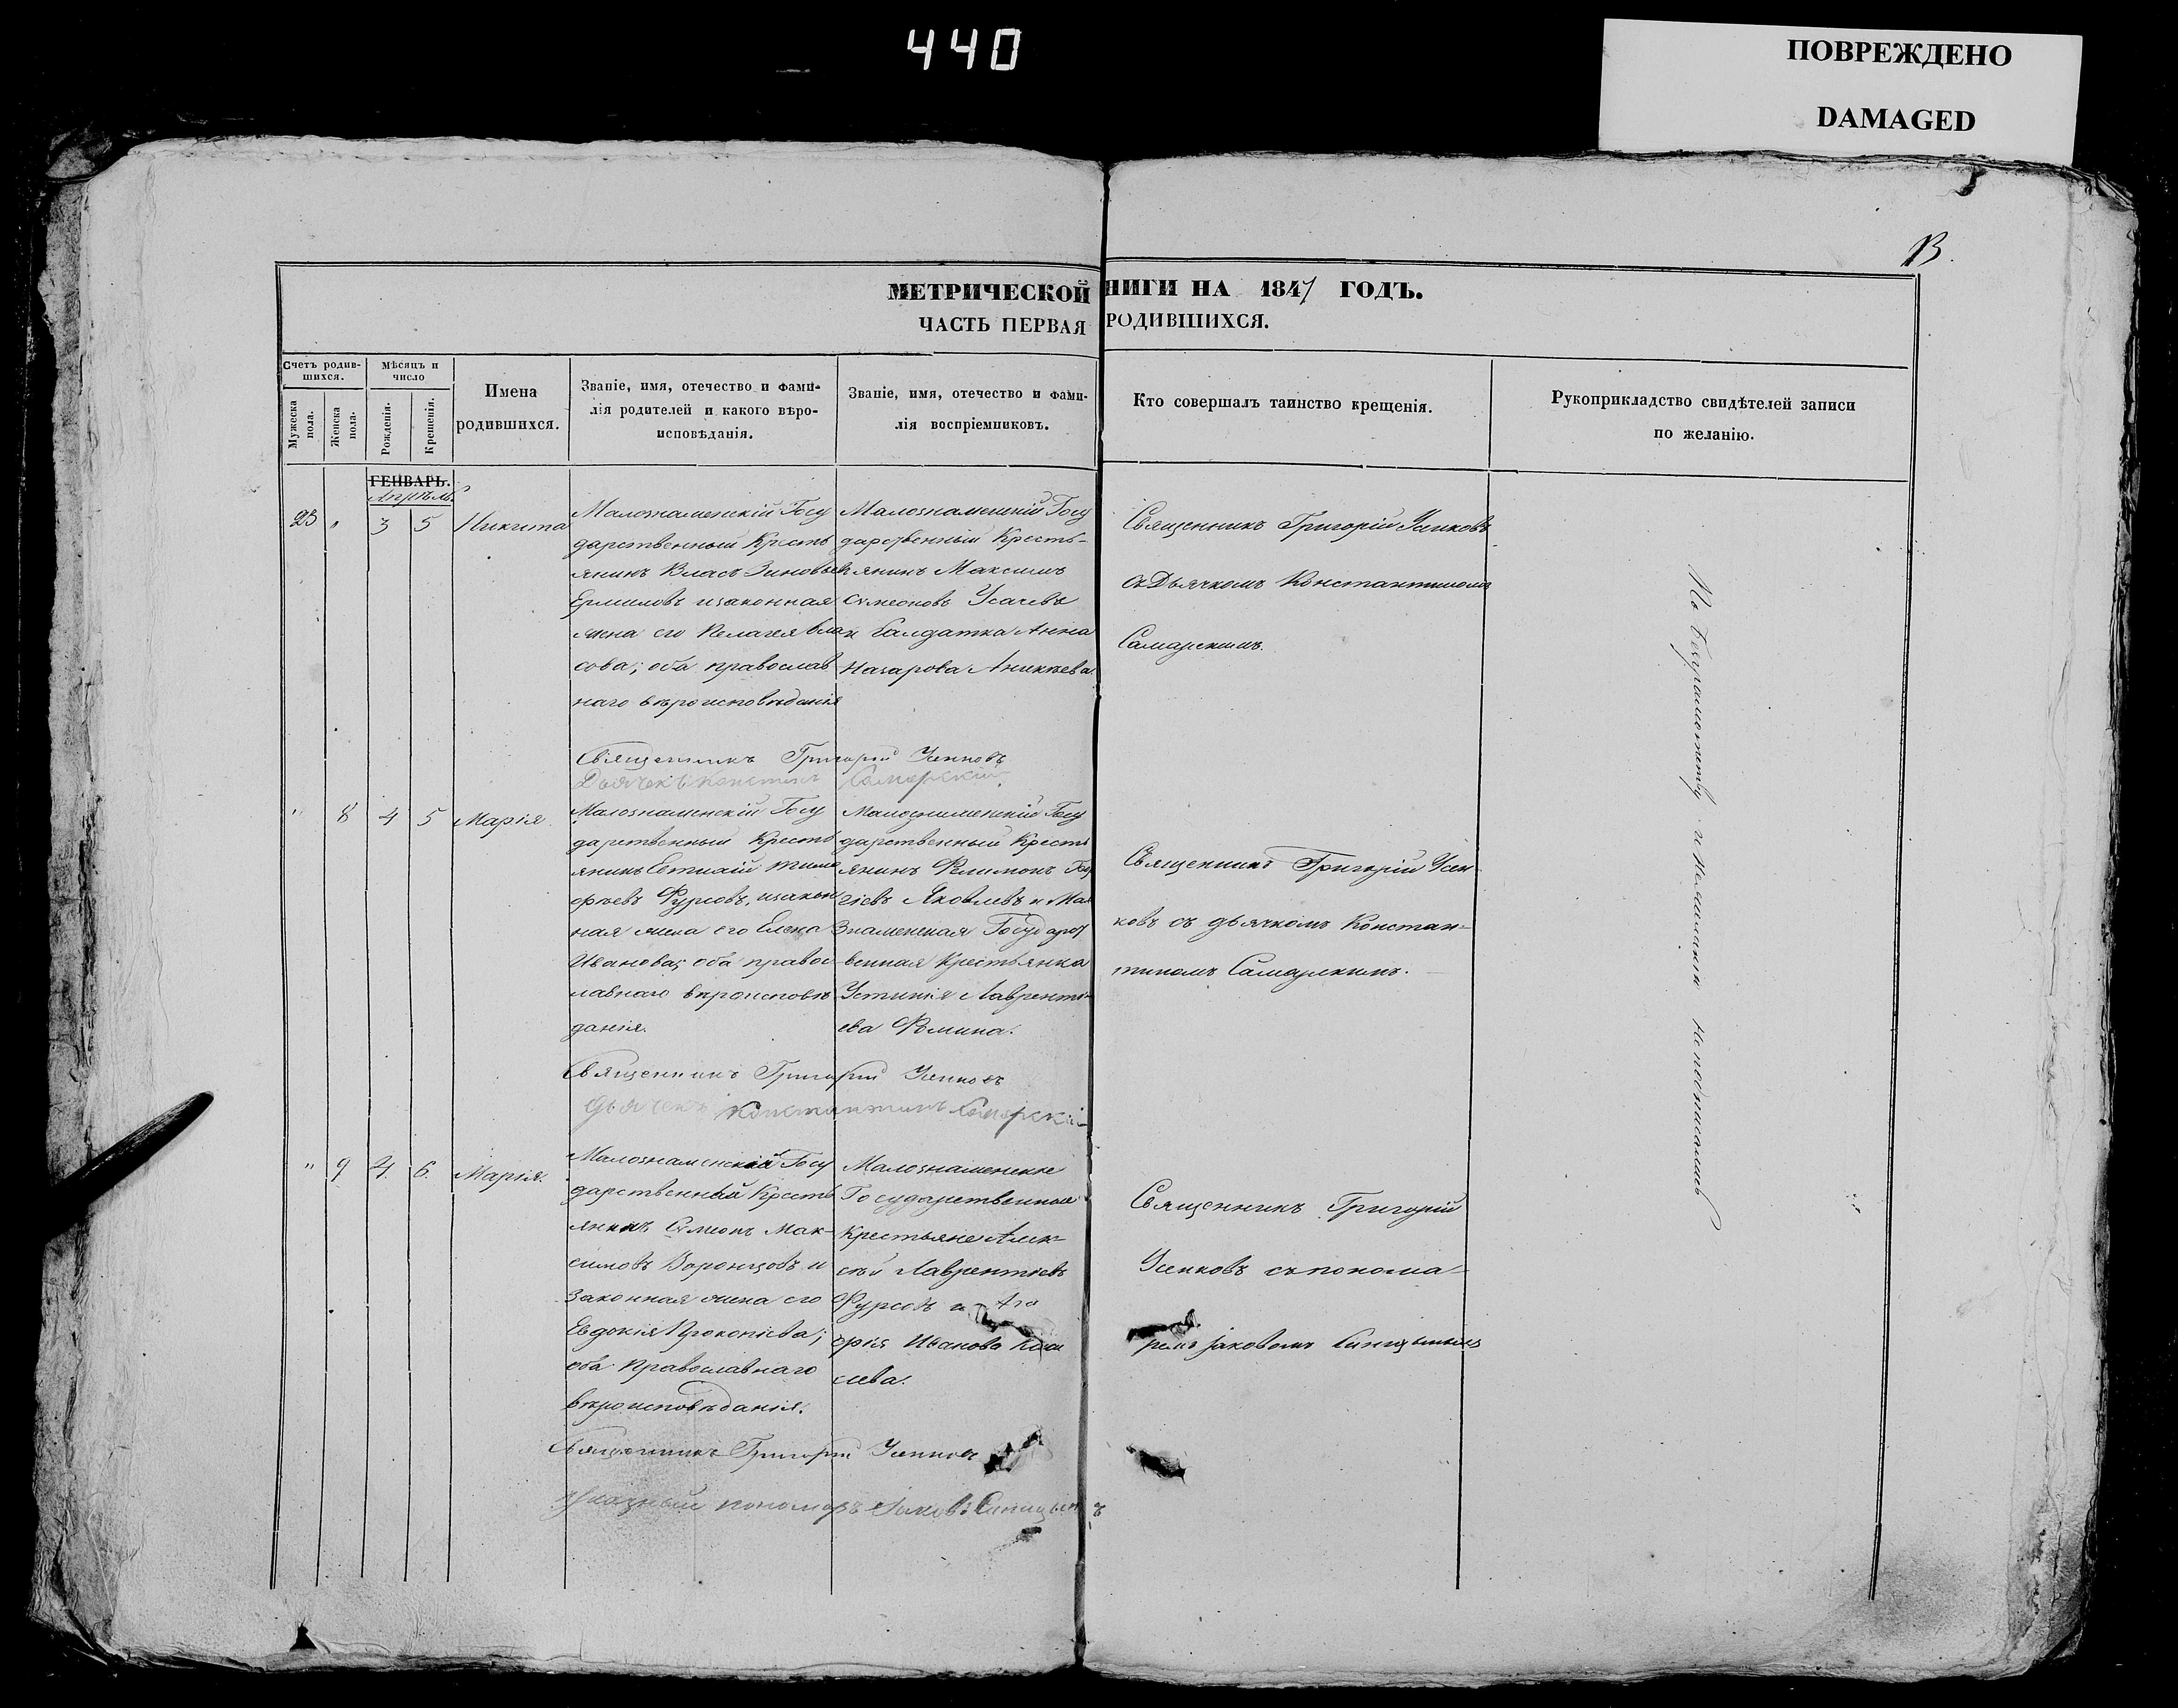 440
ПОВРЕЖДЕНО
DAMAGED
13.
МЕТРИЧЕСКОЙ НИГИ НА 1847 ГОДЪ.
ЧАСТЬ ПЕРВАЯ РОДИВШИХСЯ.
Счетъ родив-
шихся.
Мужеска пола.
Женска пола.
Мѣсяцъ и
число
Рожденія.
Крещенія.
Имена
родившихся.
Званіе, имя, отечество и фами-
лія родителей и какого вѣро-
исповѣданія.
Званіе, имя, отечество и фами-
лія воспріемниковъ.
Кто совершалъ таинство крещенія.
Рукоприкладство свидѣтелей записи
по желанію.
ГЕНВАРЬ.
Апрѣль
23 " 3 5 Никита
Малознаменскій Госу
дарственный Кресть
янинъ Власъ Зиновьевъ
Ермиловъ изаконная
жена его Пелагея Вла
сова; оба православ
наго вѣроисповѣданія
Малознаменскій Госу
дарственный Кресть-
янинъ Максимъ
Симеоновъ Усачевъ
и Салдатка Анна
Назарова Аникѣева
Священникъ Григорій Усенковъ
съ Дьячкомъ Константиномъ
Самарскимъ.
Священникъ Григорій Усенковъ
Дьячекъ Констан Самарскій
" 8 4 5 Марія
Малознаменскій Госу
дарственный Кресть
янинъ Евтихій Тимо
фѣевъ Фурсовъ, изакон
ная жена его Елена
Иванова; оба право
лавнаго вѣроисповѣ
данія.
Малознаменскій Госу
дарственный Кресть
янинъ Филимонъ
гіевъ Яковлевъ и Мало
Знаменская Государст
венная Крестьянка
Устинія Лавренті-
ева Фомина.
Священникъ Григорій Усен
ковъ съ дьячкомъ Констан=
тиномъ Самарскимъ.
Священникъ Григорій Усенковъ
Дьячекъ Константинъ Самарскій
" 9 4. 6. Марія.
Малознаменскій Госу
дарственный Кресть
янинъ Симеонъ Мак-
симовъ Воронцовъ и
законная жена его
Евдокія Прокопіева;
оба Православнаго
вѣроисповѣданія.
Малознаменскіе
Государственные
Крестьяне Алек=
сѣй Лаврентіевъ
Фурсовъ и Ага
фія Иванова
лева.
Священникъ Григорій
Усенковъ съ понома=
ремъ Іаковомъ Синицынымъ
Священникъ Григорій Усенковъ
Указный пономарь Іаковъ Синицынъ
По безграмотству и неимѣнію неподписались